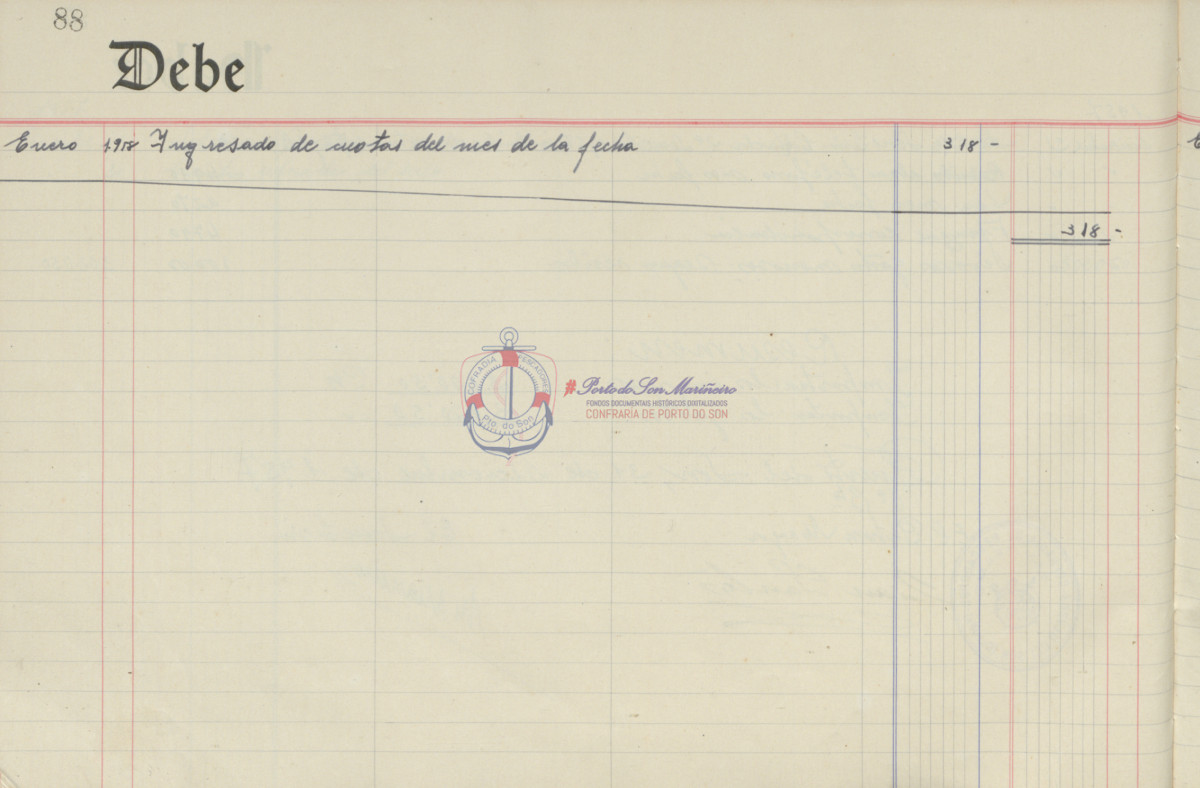 88
Debe
Enero 1958 Ingresado de cuotas del mes de la fecha 318 -
318 -
COFRADIA PESCADORES
Pto. do Son
#Porto do Son Mariñeiro
FONDOS DOCUMENTAIS HISTÓRICOS DIXITALIZADOS
CONFRARÍA DE PORTO DO SON